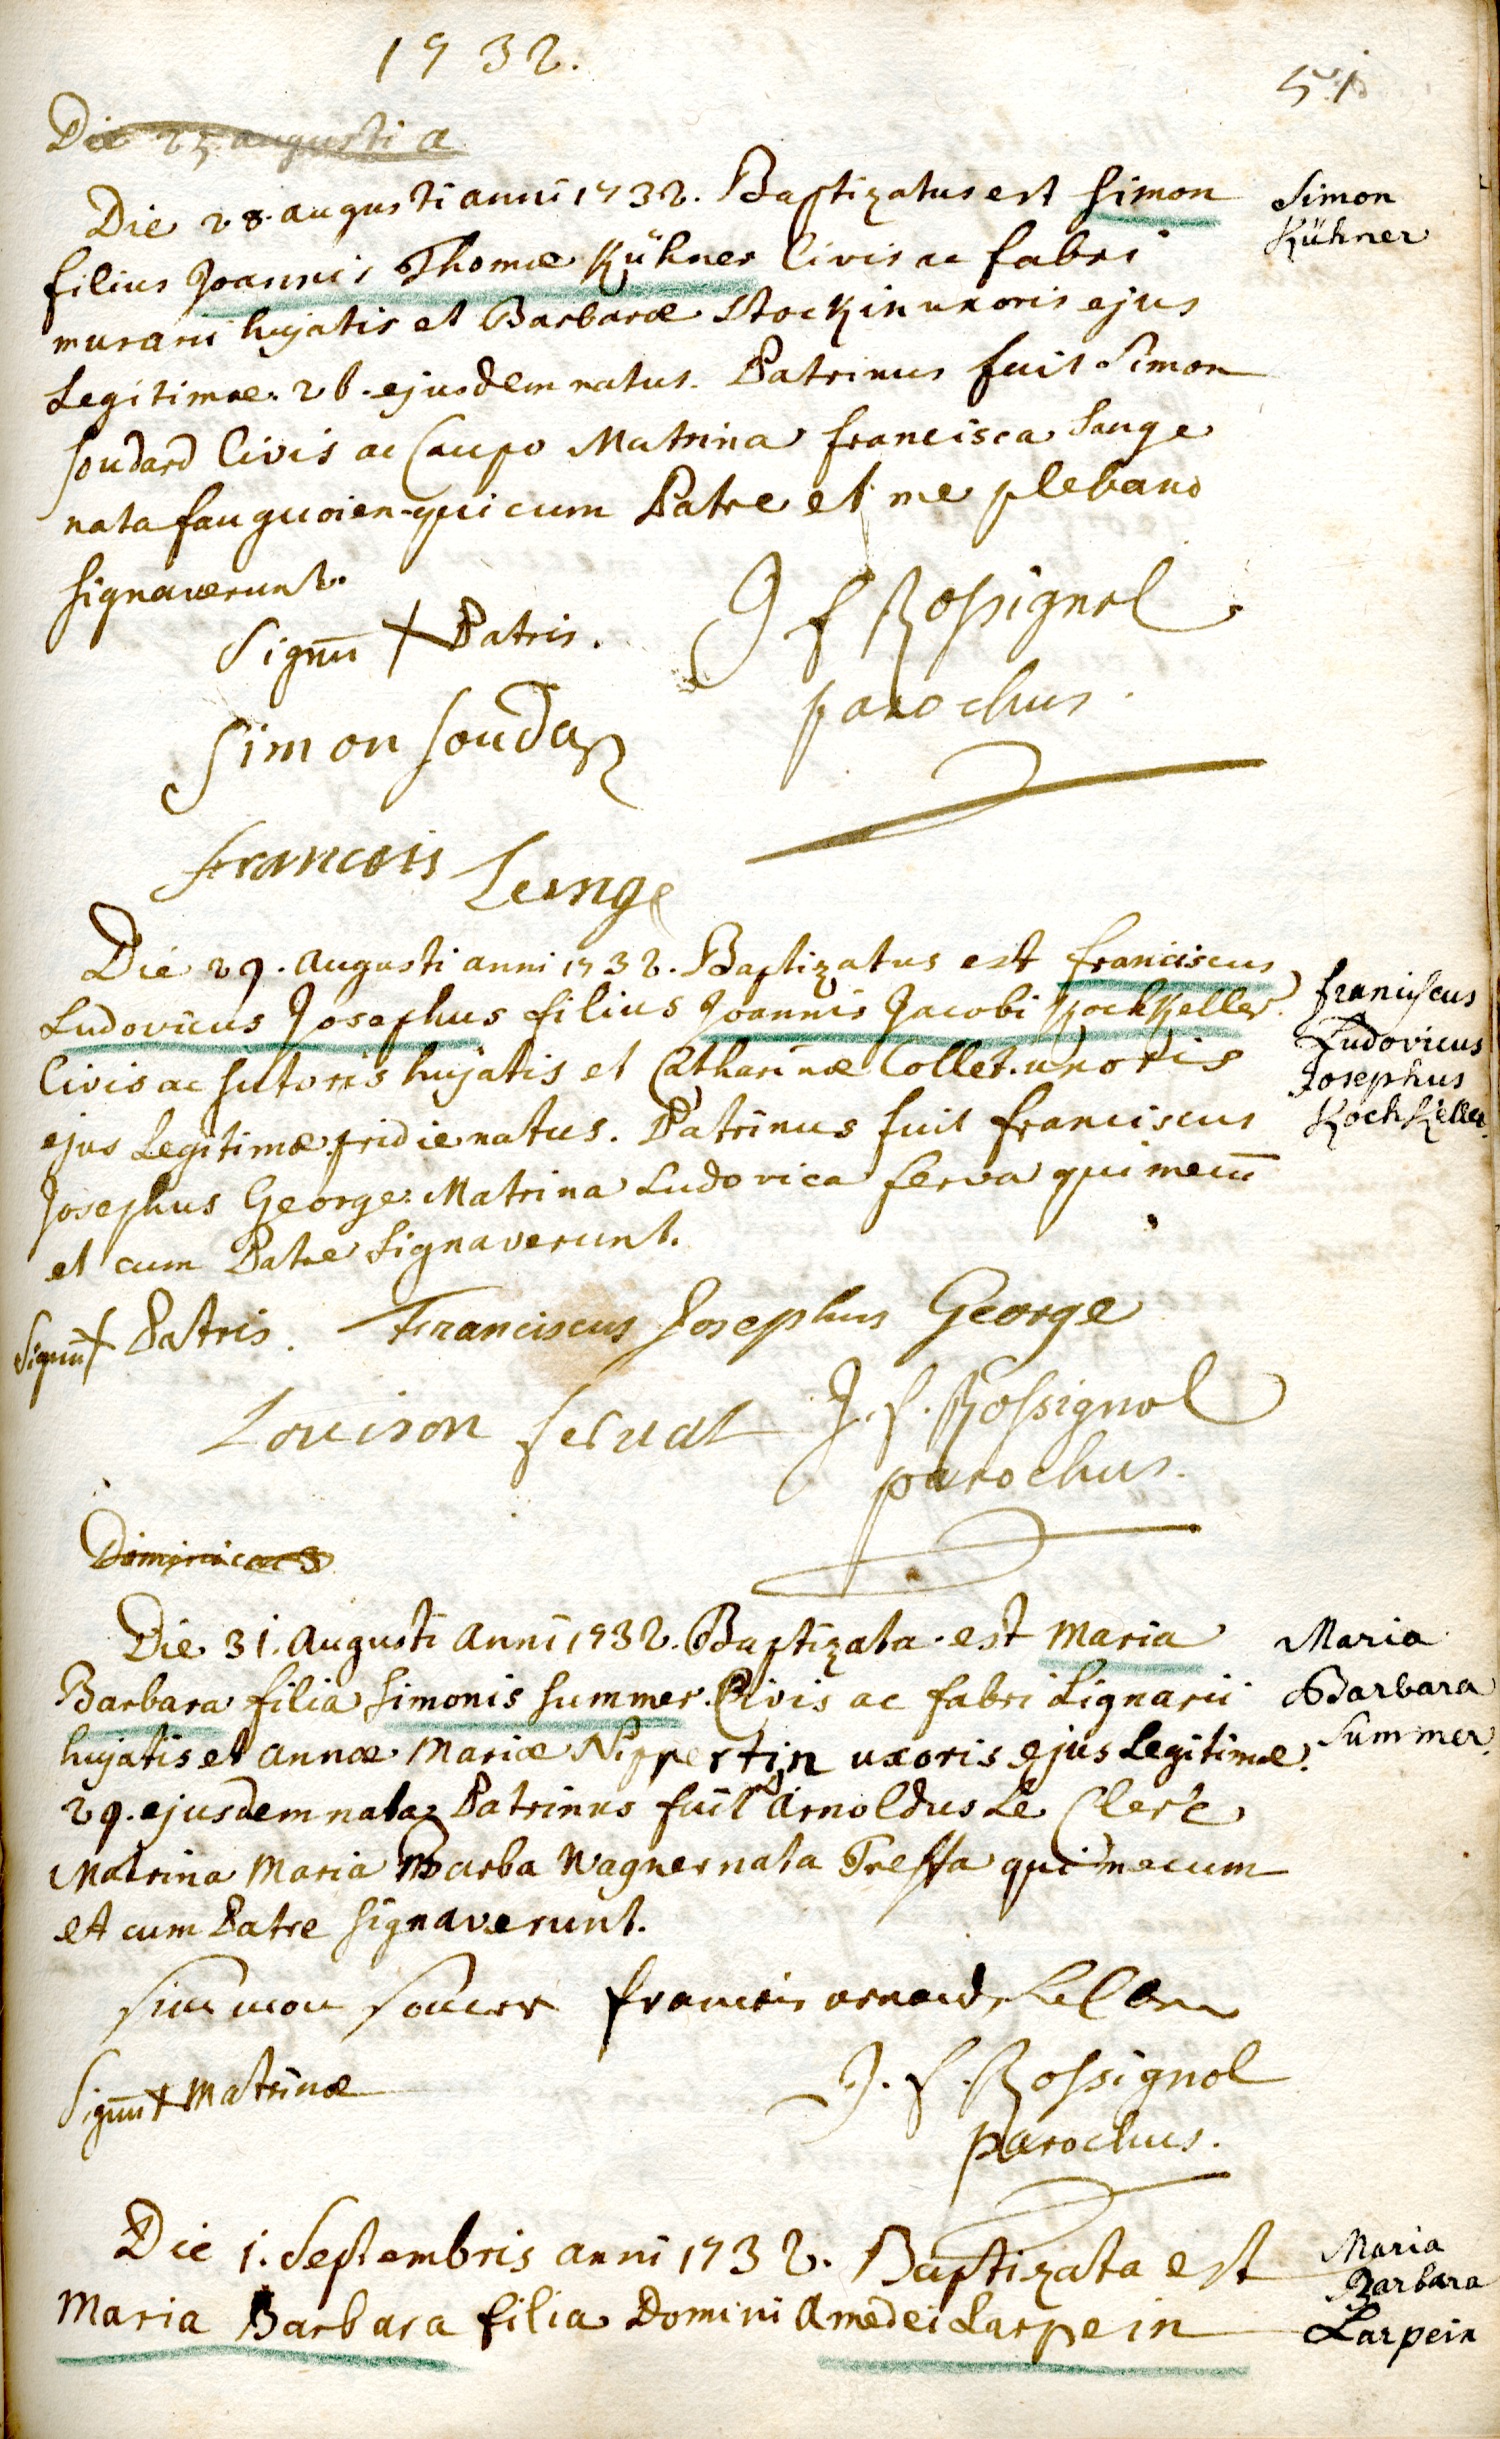 1732.
51
Die 25 augusti a
Die 28. augusti anni 1732. Baptizatus est Simon
Simon
Kühner
filius Joannis Thomæ Kühner Civis ac fabri
murarii hujatis et Barbaræ Stockin uxoris ejus
Legitimæ. 26. ejusdem natus. Patrinus fuit Simon
Soudard Civis ac Caupo Matrina francisca Sange
nata qui cum Patre et me plebano
signaverunt.
Signū + Patris.
J f Rossignol
parochus.
Simon Soudar
francois Leinge
Die 29. Augusti anni 1732. Baptizatus est franciscus
Ludovicus Josephus filius Joannis Jacobi Kochkeller.
franciscus
Ludovicus
Josephus
Kochkeller.
Civis ac sutoris hujatis et Catharinæ Collet. uxoris
ejus Legitimæ. pridie natus. Patrinus fuit franciscus
Josephus George. Matrina Ludovica serva qui mecū
et cum Patre signaverunt.
Signū + Patris. Franciscus Josephus George
Louison servat
J. f. Rossignol
parochus.
Dominicus
Die 31. Augusti Anni 1732. Baptizata est Maria
Maria
Barbara
Summer.
Barbara filia Simonis Summer. Civis ac fabri Lignarii
hujatis et Annæ Mariæ Nippertin uxoris ejus Legitimæ.
29. ejusdem nata. Patrinus fuit Arnoldus Le Clerc
Matrina Maria Barba Wagner nata Treffa qui mecum
et cum Patre signaverunt.
francois
Signū + Matrinæ
J. f. Rossignol
parochus.
Die 1. Septembris anni 1732. Baptizata est
Maria Barbara filia Domini Amedei Larpein
Maria
Barbara
Larpein